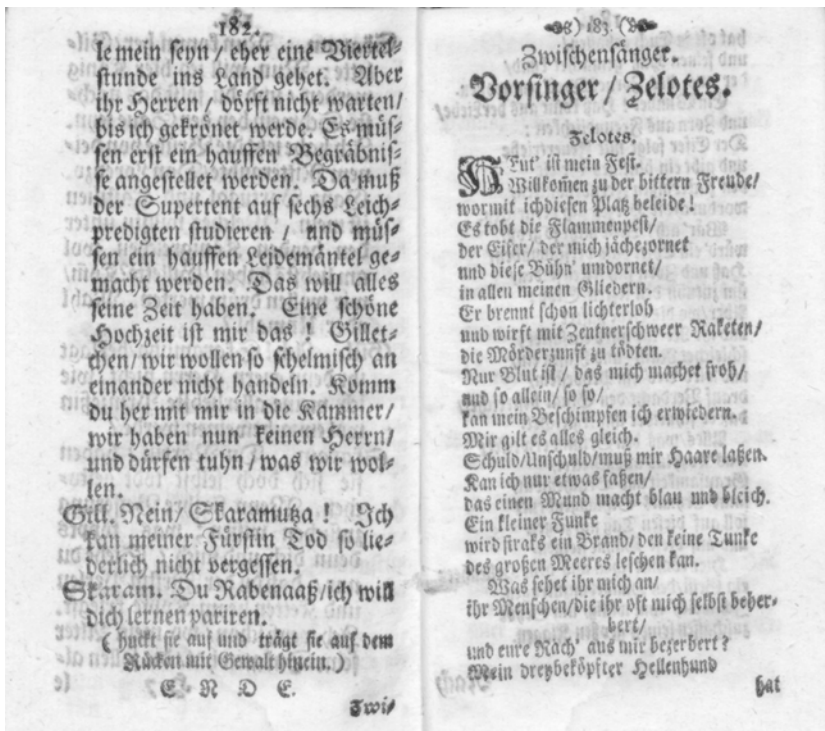 182.
le mein seyn / eher eine Viertel-
stunde ins Land gehet. Aber
ihr Herren / dörft nicht warten /
bis ich gekrönet werde. Es müs-
sen erst ein hauffen Begräbnis-
se angestellet werden. Da muß
der Supertent auf sechs Leich-
predigten studieren / und müs-
sen ein hauffen Leidemäntel ge-
macht werden. Das will alles
seine Zeit haben. Eine schöne
Hochzeit ist mir das ! Gillet-
chen / wir wollen so schelmisch an
einander nicht handeln. Komm
du her mit mir in die Kammer /
wir haben nun keinen Herrn /
und dürfen tuhn / was wir wol-
len.
Gill. Nein / Skaramutza ! Ich
kan meiner Fürstin Tod so lie-
derlich nicht vergessen.
Skaram. Du Rabenaaß / ich will
dich lernen pariren.
( huckt sie auf und trägt sie auf dem
Rücken mit Gewalt hinein. )
E. N D E.
Zwi-
) 183. (
Zwischensänger.
Vorsinger / Zelotes.
Zelotes.
HEut' ist mein Fest.
Willkom̃en zu der bittern Freude /
wormit ich diesen Platz beleide !
Es tobt die Flammenpest /
der Eifer / der mich jächezornet
und diese Bühn' umdornet /
in allen meinen Gliedern.
Er brennt schon lichterloh
und wirft mit Zentnerschweer Raketen /
die Mörderzunft zu tödten.
Nur Blut ist / das mich machet froh /
und so allein / so so /
kan mein Beschimpfen ich erwiedern.
Mir gilt es alles gleich.
Schuld / Unschuld / muß mir Haare laßen.
Kan ich nur etwas faßen /
das einen Mund macht blau und bleich.
Ein kleiner Funke
wird straks ein Brand / den keine Tunke
des großen Meeres leschen kan.
Was sehet ihr mich an /
ihr Menschen / die ihr oft mich selbst beher-
bert /
und eure Rach' aus mir bezerbert ?
Mein dreybeköpfter Hellenhund
hat